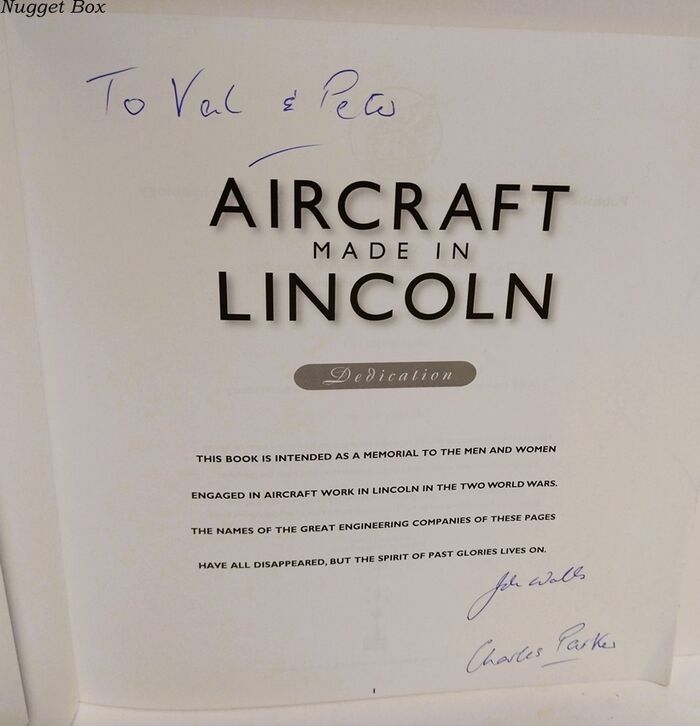 Nugget Box
To Val & Peter
AIRCRAFT
MADE IN
LINCOLN
Dedication
THIS BOOK IS INTENDED AS A MEMORIAL TO THE MEN AND WOMEN
ENGAGED IN AIRCRAFT WORK IN LINCOLN IN THE TWO WORLD WARS.
THE NAMES OF THE GREAT ENGINEERING COMPANIES OF THESE PAGES
HAVE ALL DISAPPEARED, BUT THE SPIRIT OF PAST GLORIES LIVES ON.
John Walls
Charles Parker